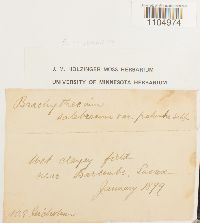 1104974
J. M. HOLZINGER MOSS HERBARIUM
UNIVERSITY OF MINNESOTA HERBARIUM
Brachythecium
salebrosum var palustre
Wet clayey field
near Barcombe, Sussex
January 1879